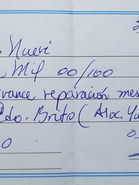 . Nueve
, Mil 00/100
avance reparación mes
do. Brito (Asoc. Yu
0